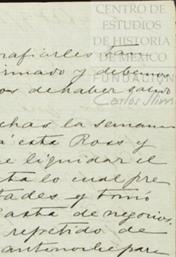 CENTRO DE
ESTUDIOS
DE HISTORIA
DE MÉXICO
FUNDACIÓN
Carlos Slim
rmado y debemos
de haber salido
chas la semana
a esta Ross y
e liquidar el
ta lo cual pre
tades y tomó
asta de negocios.
repetido de
antenoche par